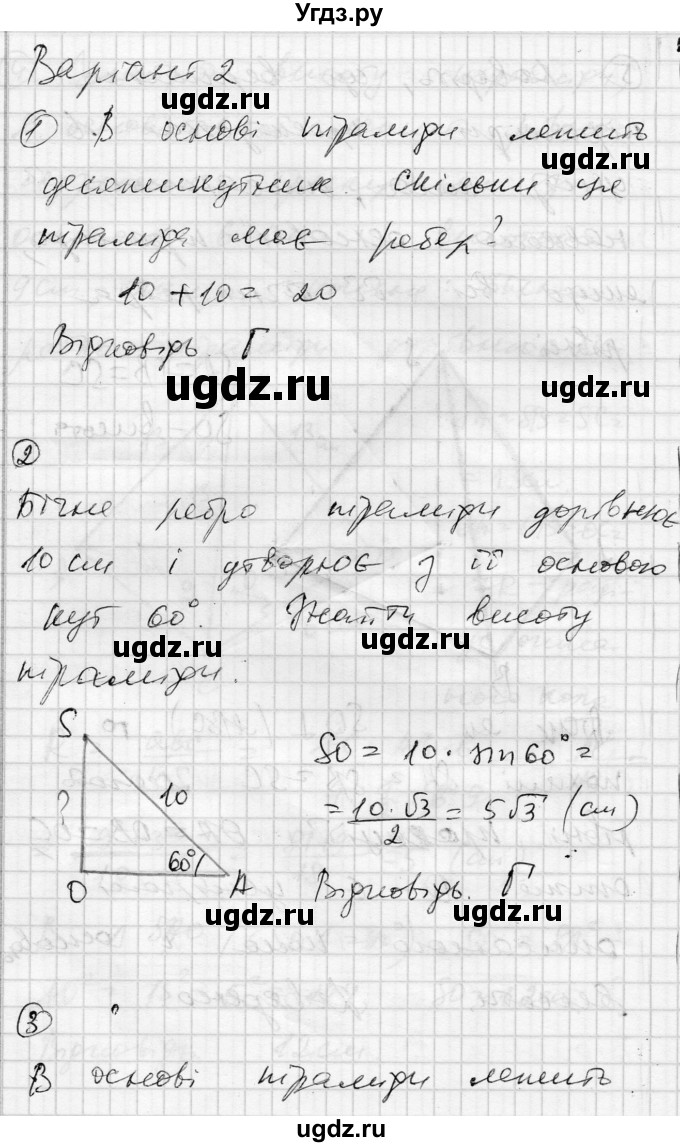 Угдз.ру
Варіант 2
ugdz.ru
① В основі піраміди лежить
ugdz.ru
десятикутник. Скільки ця
піраміда має ребер?
10 + 10 = 20
Відповідь. Г
ugdz.ru
ugdz.ru
②
Бічне ребро піраміди дорівнює
ugdz.ru
ugdz.ru
10 см і утворює з її основою
кут 60°. Знайти висоту
ugdz.ru
ugdz.ru
піраміди.
S
SO = 10 · sin 60° =
? 10
= 10 · √3 / 2 = 5√3 (см)
60°
O A
Відповідь. Г
ugdz.ru
ugdz.ru
③
ugdz.ru
ugdz.ru
В основі піраміди лежить
ugdz.ru
ugdz.ru